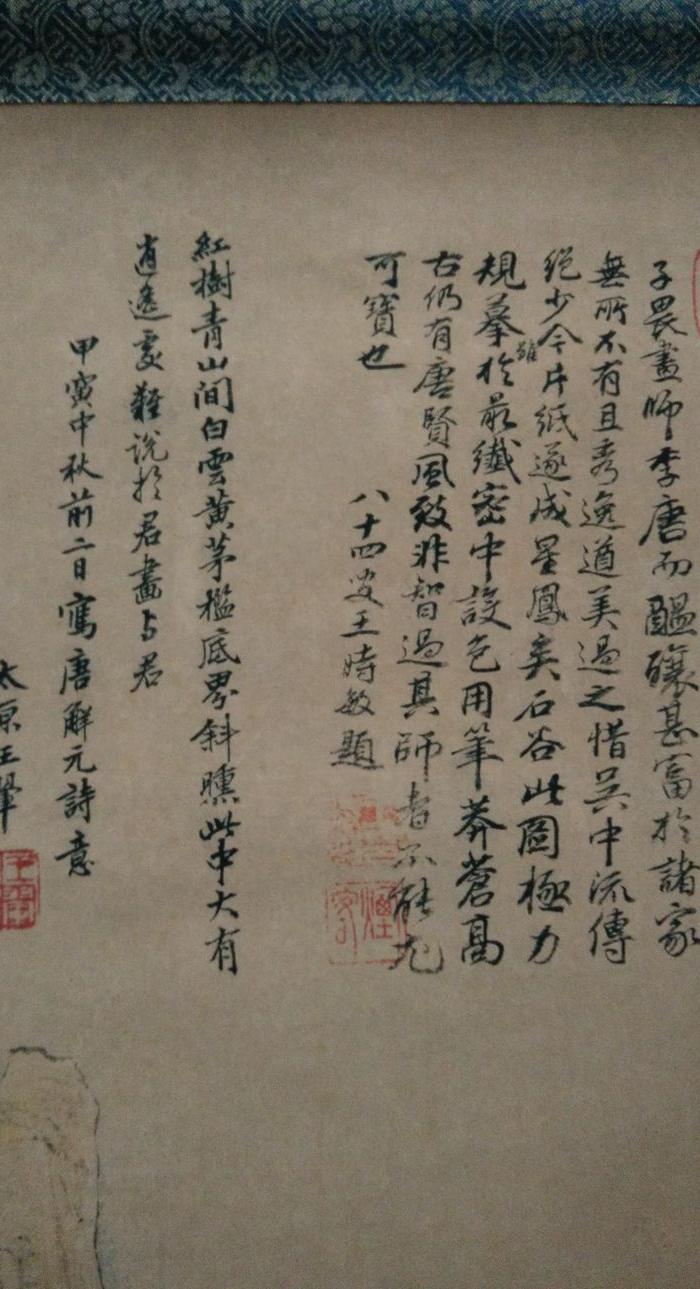 子畏畫師李唐而醞釀甚富於諸家
無所不有且秀逸遒美過之惜吴中流傳
絕少今雖片紙遂成星鳳矣石谷此圖極力
規摹於最纖密中設色用筆莽蒼高
古仍有唐賢風致非智過其師者不能尤
可寶也
八十四叟王時敏題
紅樹青山間白雲黄茅檻底界斜曛此中大有
逍遙處難說於君畫与君
甲寅中秋前二日寫唐解元詩意
太原王翬